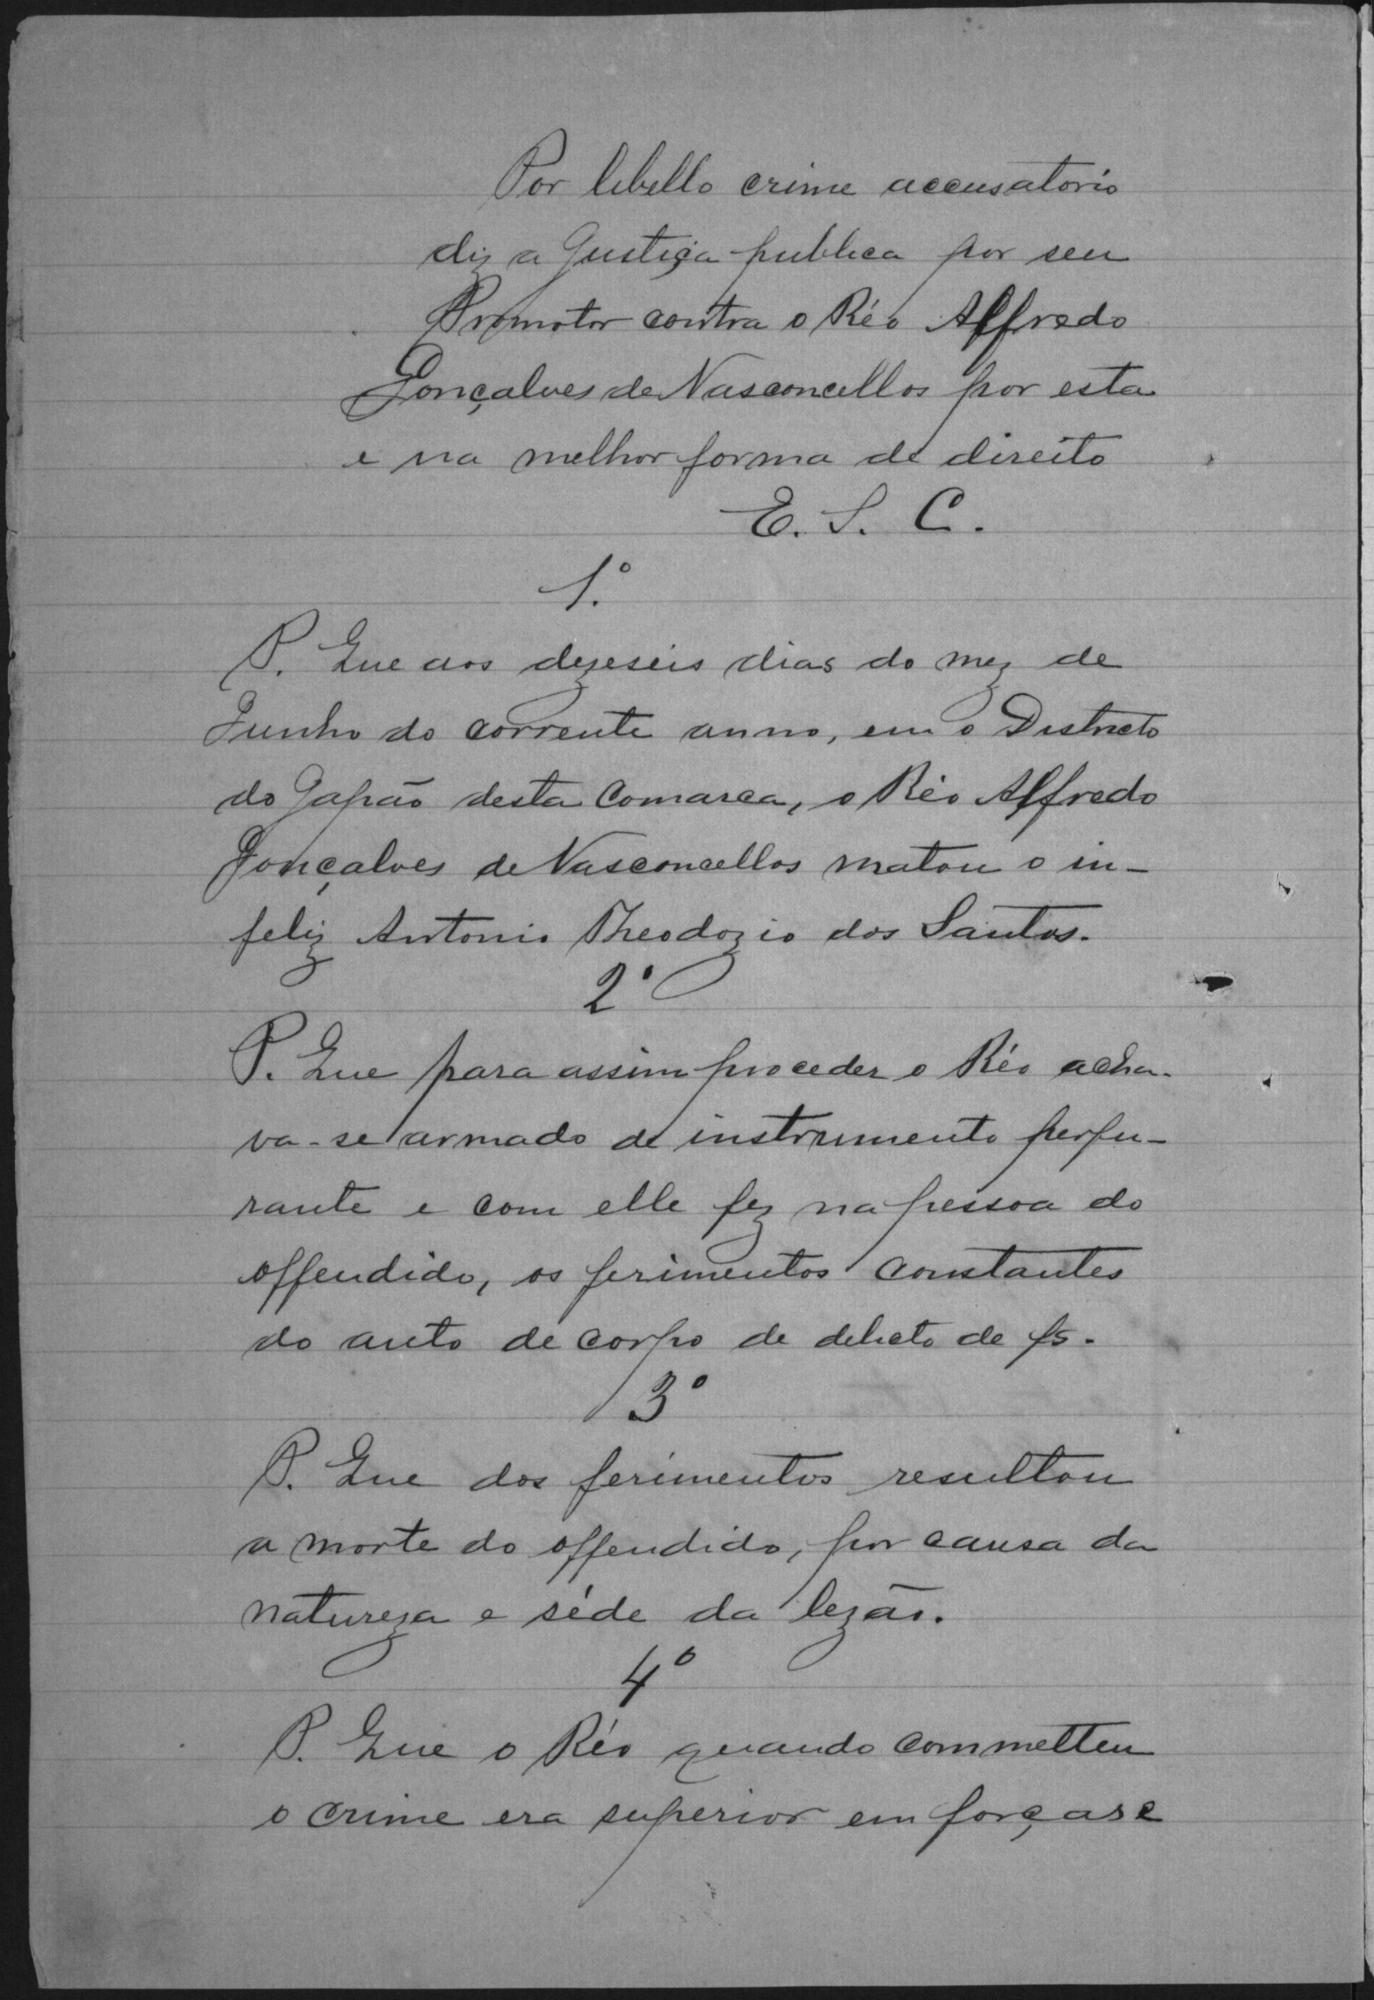 Por libello crime accusatorio
diz a Justiça publica por seu
Promotor contra o Réo Alffredo
Gonçalves de Vasconcellos por esta
e na melhor forma de direito
E. S. C.
1.º
P. Que aos dezeseis dias do mez de
Junho do corrente anno, em o Districto
do Japão desta Comarca, o Réo Alffredo
Gonçalves de Vasconcellos matou o in-
feliz Antonio Theodozio dos Santos.
2º
P. Que para assim proceder o Réo acha-
va-se armado de instrumento perfu-
rante e com elle fez na pessoa do
offendido, os ferimentos constantes
do auto de corpo de delicto de fs.
3º
P. Que dos ferimentos resultou
a morte do offendido, por causa da
natureza e séde da lezão.
4º
P. Que o Réo quando commetteu
o crime era superior em forças e